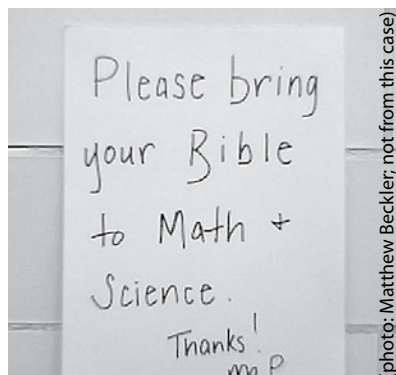 Please bring
your Bible
to Math +
Science.
Thanks!
(photo: Matthew Beckler; not from this case)